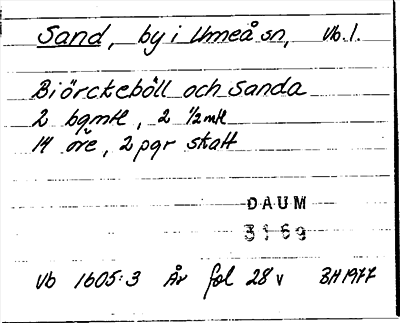 Sand, by i Umeå sn, Vb.l.
Biörckeböll och Sanda
2 bgmtl, 2 1/2 mtl
14 öre, 2 pgr skatt
DAUM
3169
Vb 1605:3 År fol 28 v BH 1977